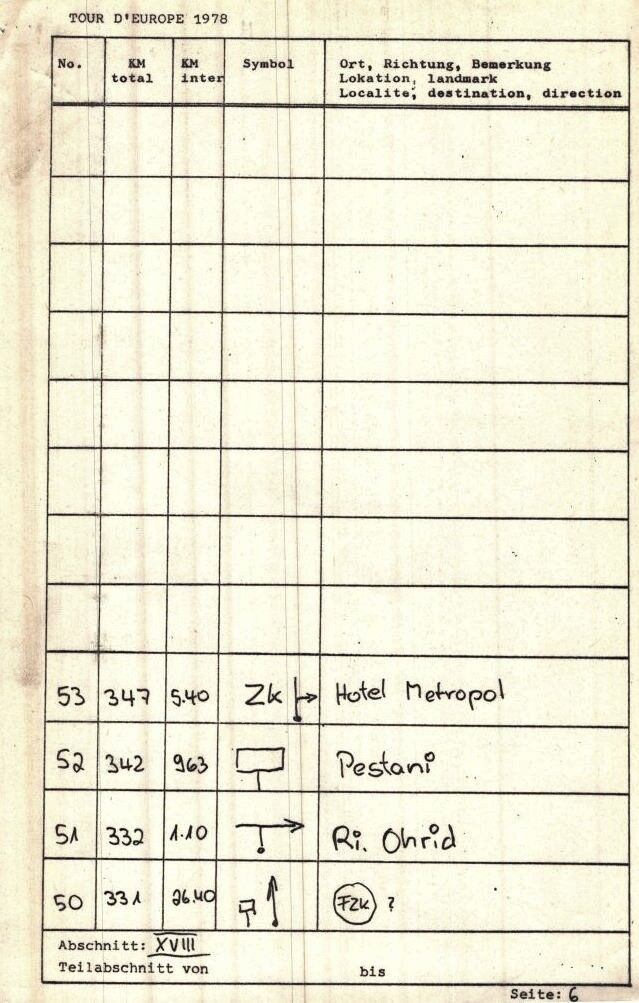 TOUR D'EUROPE 1978
No. KM total KM inter Symbol Ort, Richtung, Bemerkung
Lokation, landmark
Localite, destination, direction
53 347 5.40 Zk Hotel Metropol
52 342 963 Pestani
51 332 1.10 Ri. Ohrid
50 331 26.40 FZK ?
Abschnitt: XVIII
Teilabschnitt von bis
Seite: 6